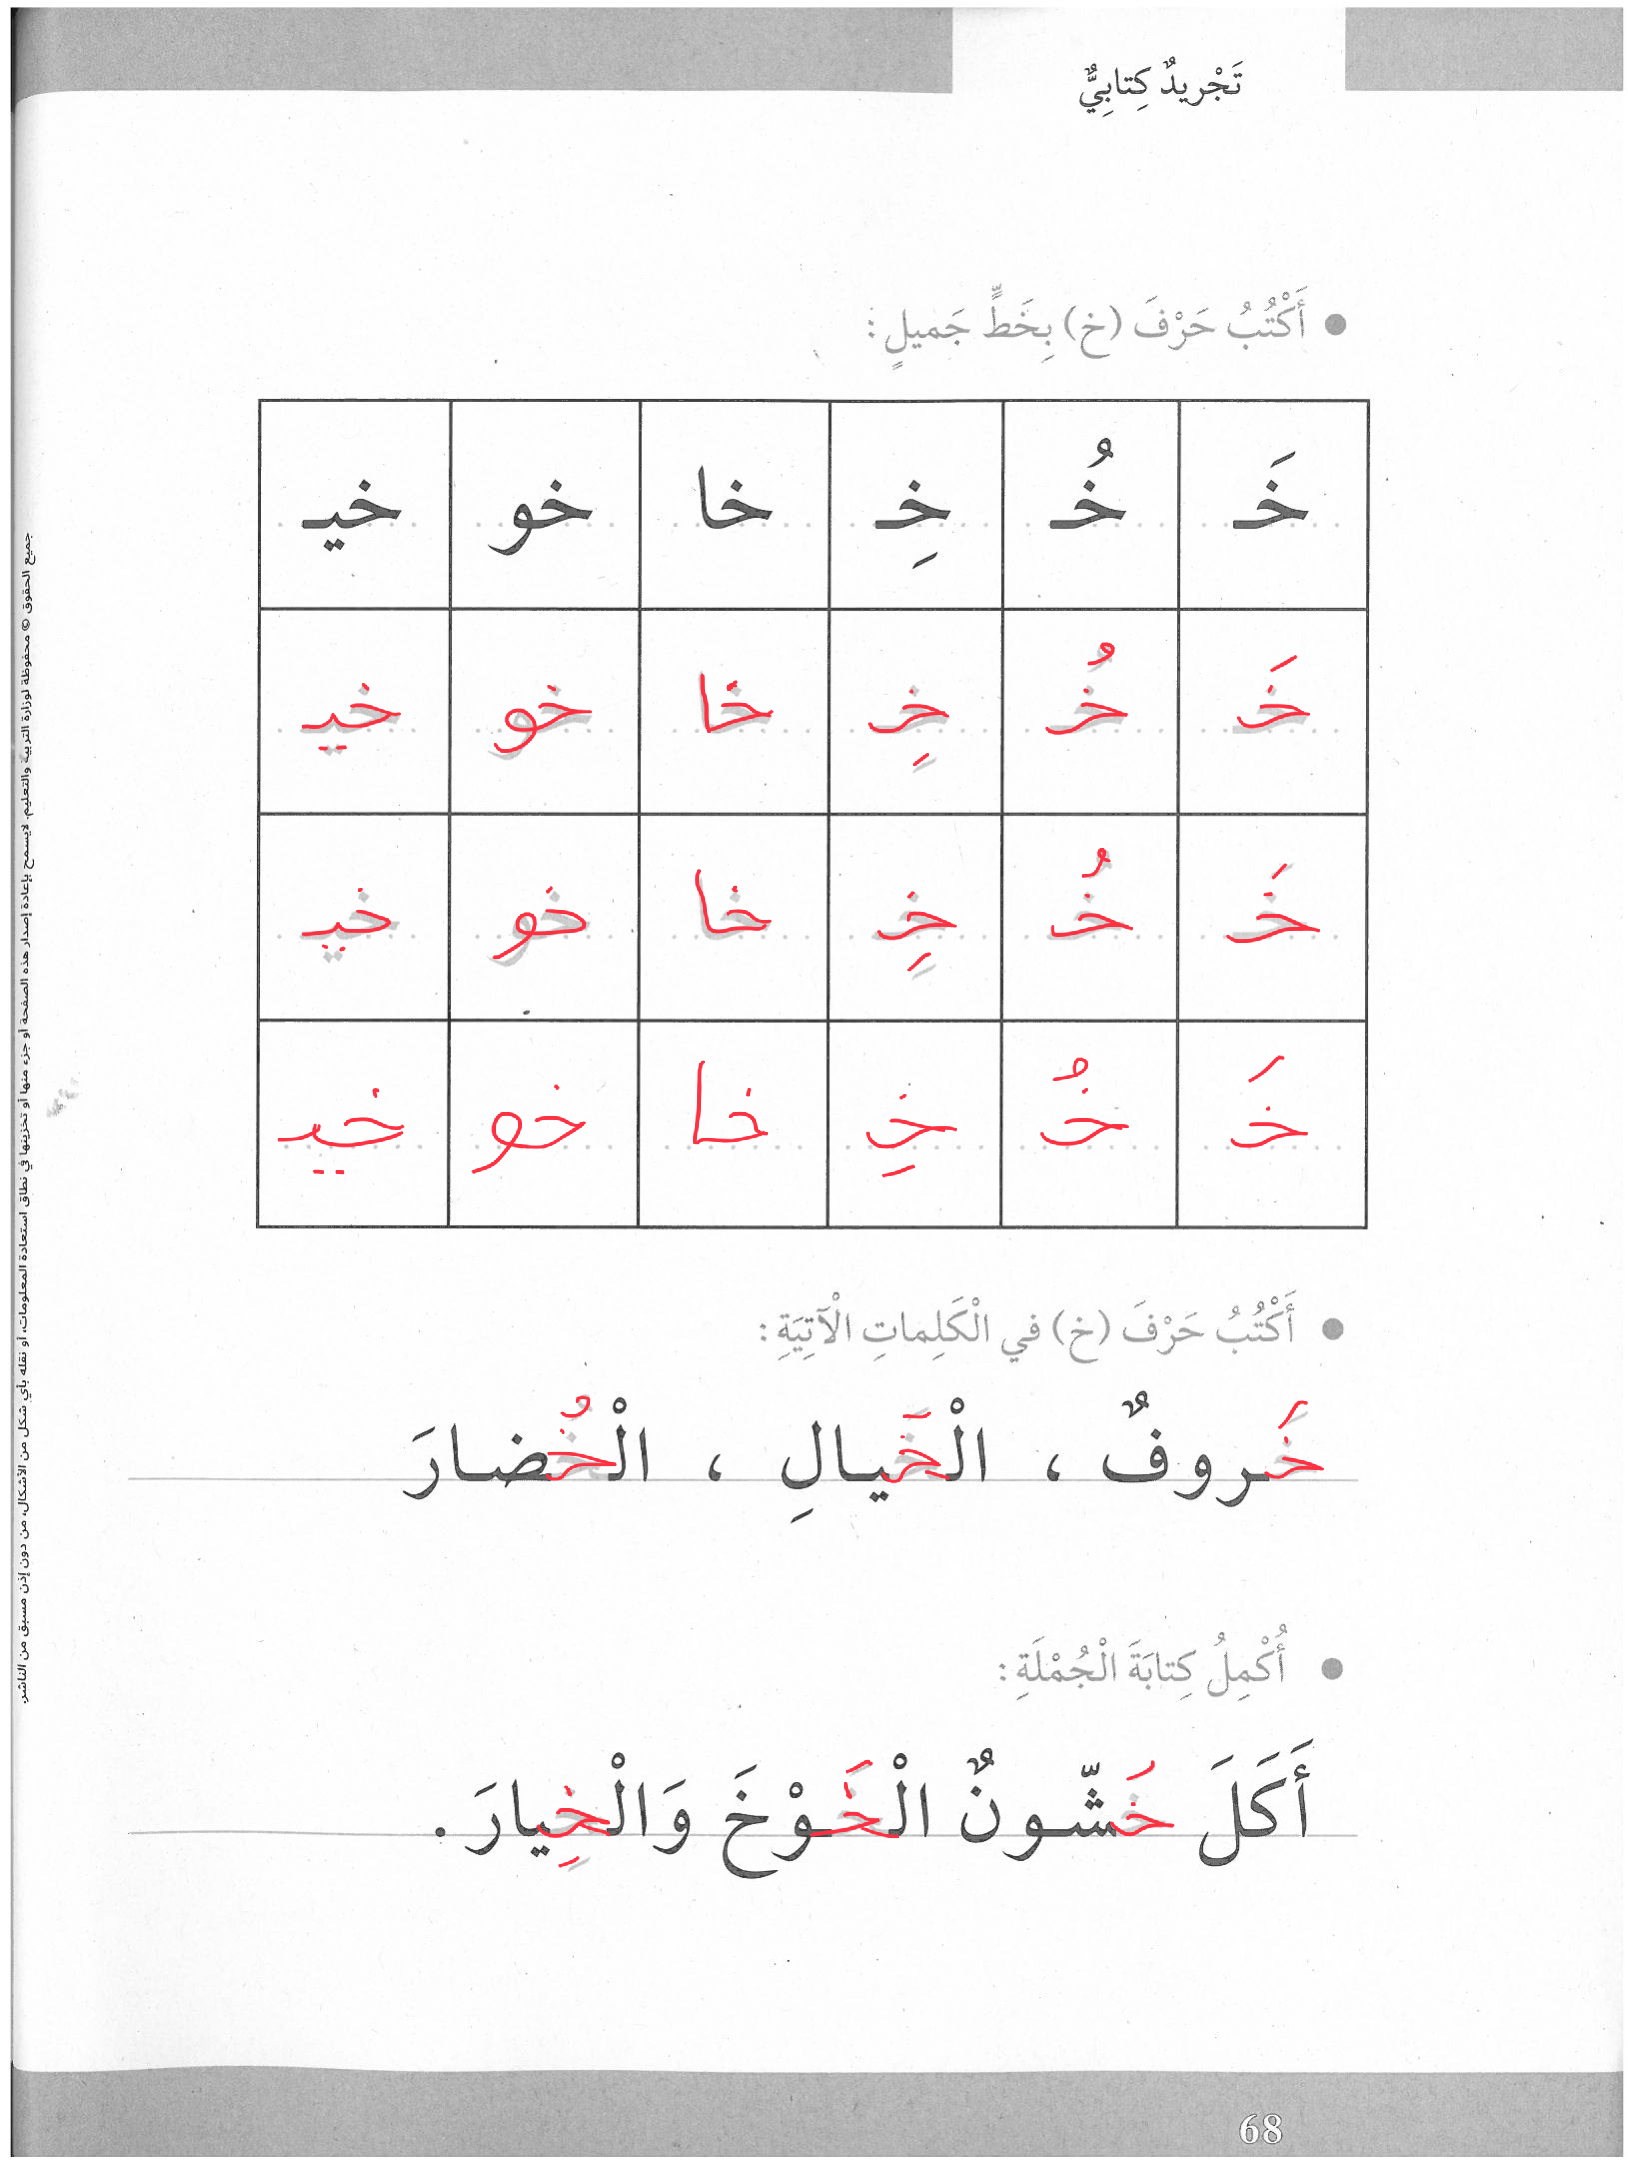 تَجْريدٌ كِتابِيٌّ
● أَكْتُبُ حَرْفَ (خ) بِخَطٍّ جَميلٍ :
خَـ خُـ خِـ خا خو خيـ
خَـ خُـ خِـ خا خو خيـ
خَـ خُـ خِـ خا خو خيـ
خَـ خُـ خِـ خا خو خيـ
● أَكْتُبُ حَرْفَ (خ) في الْكَلِماتِ الْآتِيَةِ :
خَـروفٌ ، الْخَيـالِ ، الْخُضـارَ
● أُكْمِلُ كِتابَةَ الْجُمْلَةِ :
أَكَلَ خَشّـونٌ الْخَـوْخَ وَالْخِيارَ .
جميع الحقوق © محفوظة لوزارة التربية والتعليم. لايسمح بإعادة إصدار هذه الصفحة أو جزء منها أو تخزينها في نطاق استعادة المعلومات، أو نقله بأي شكل من الأشكال، من دون إذن مسبق من الناشر.
68